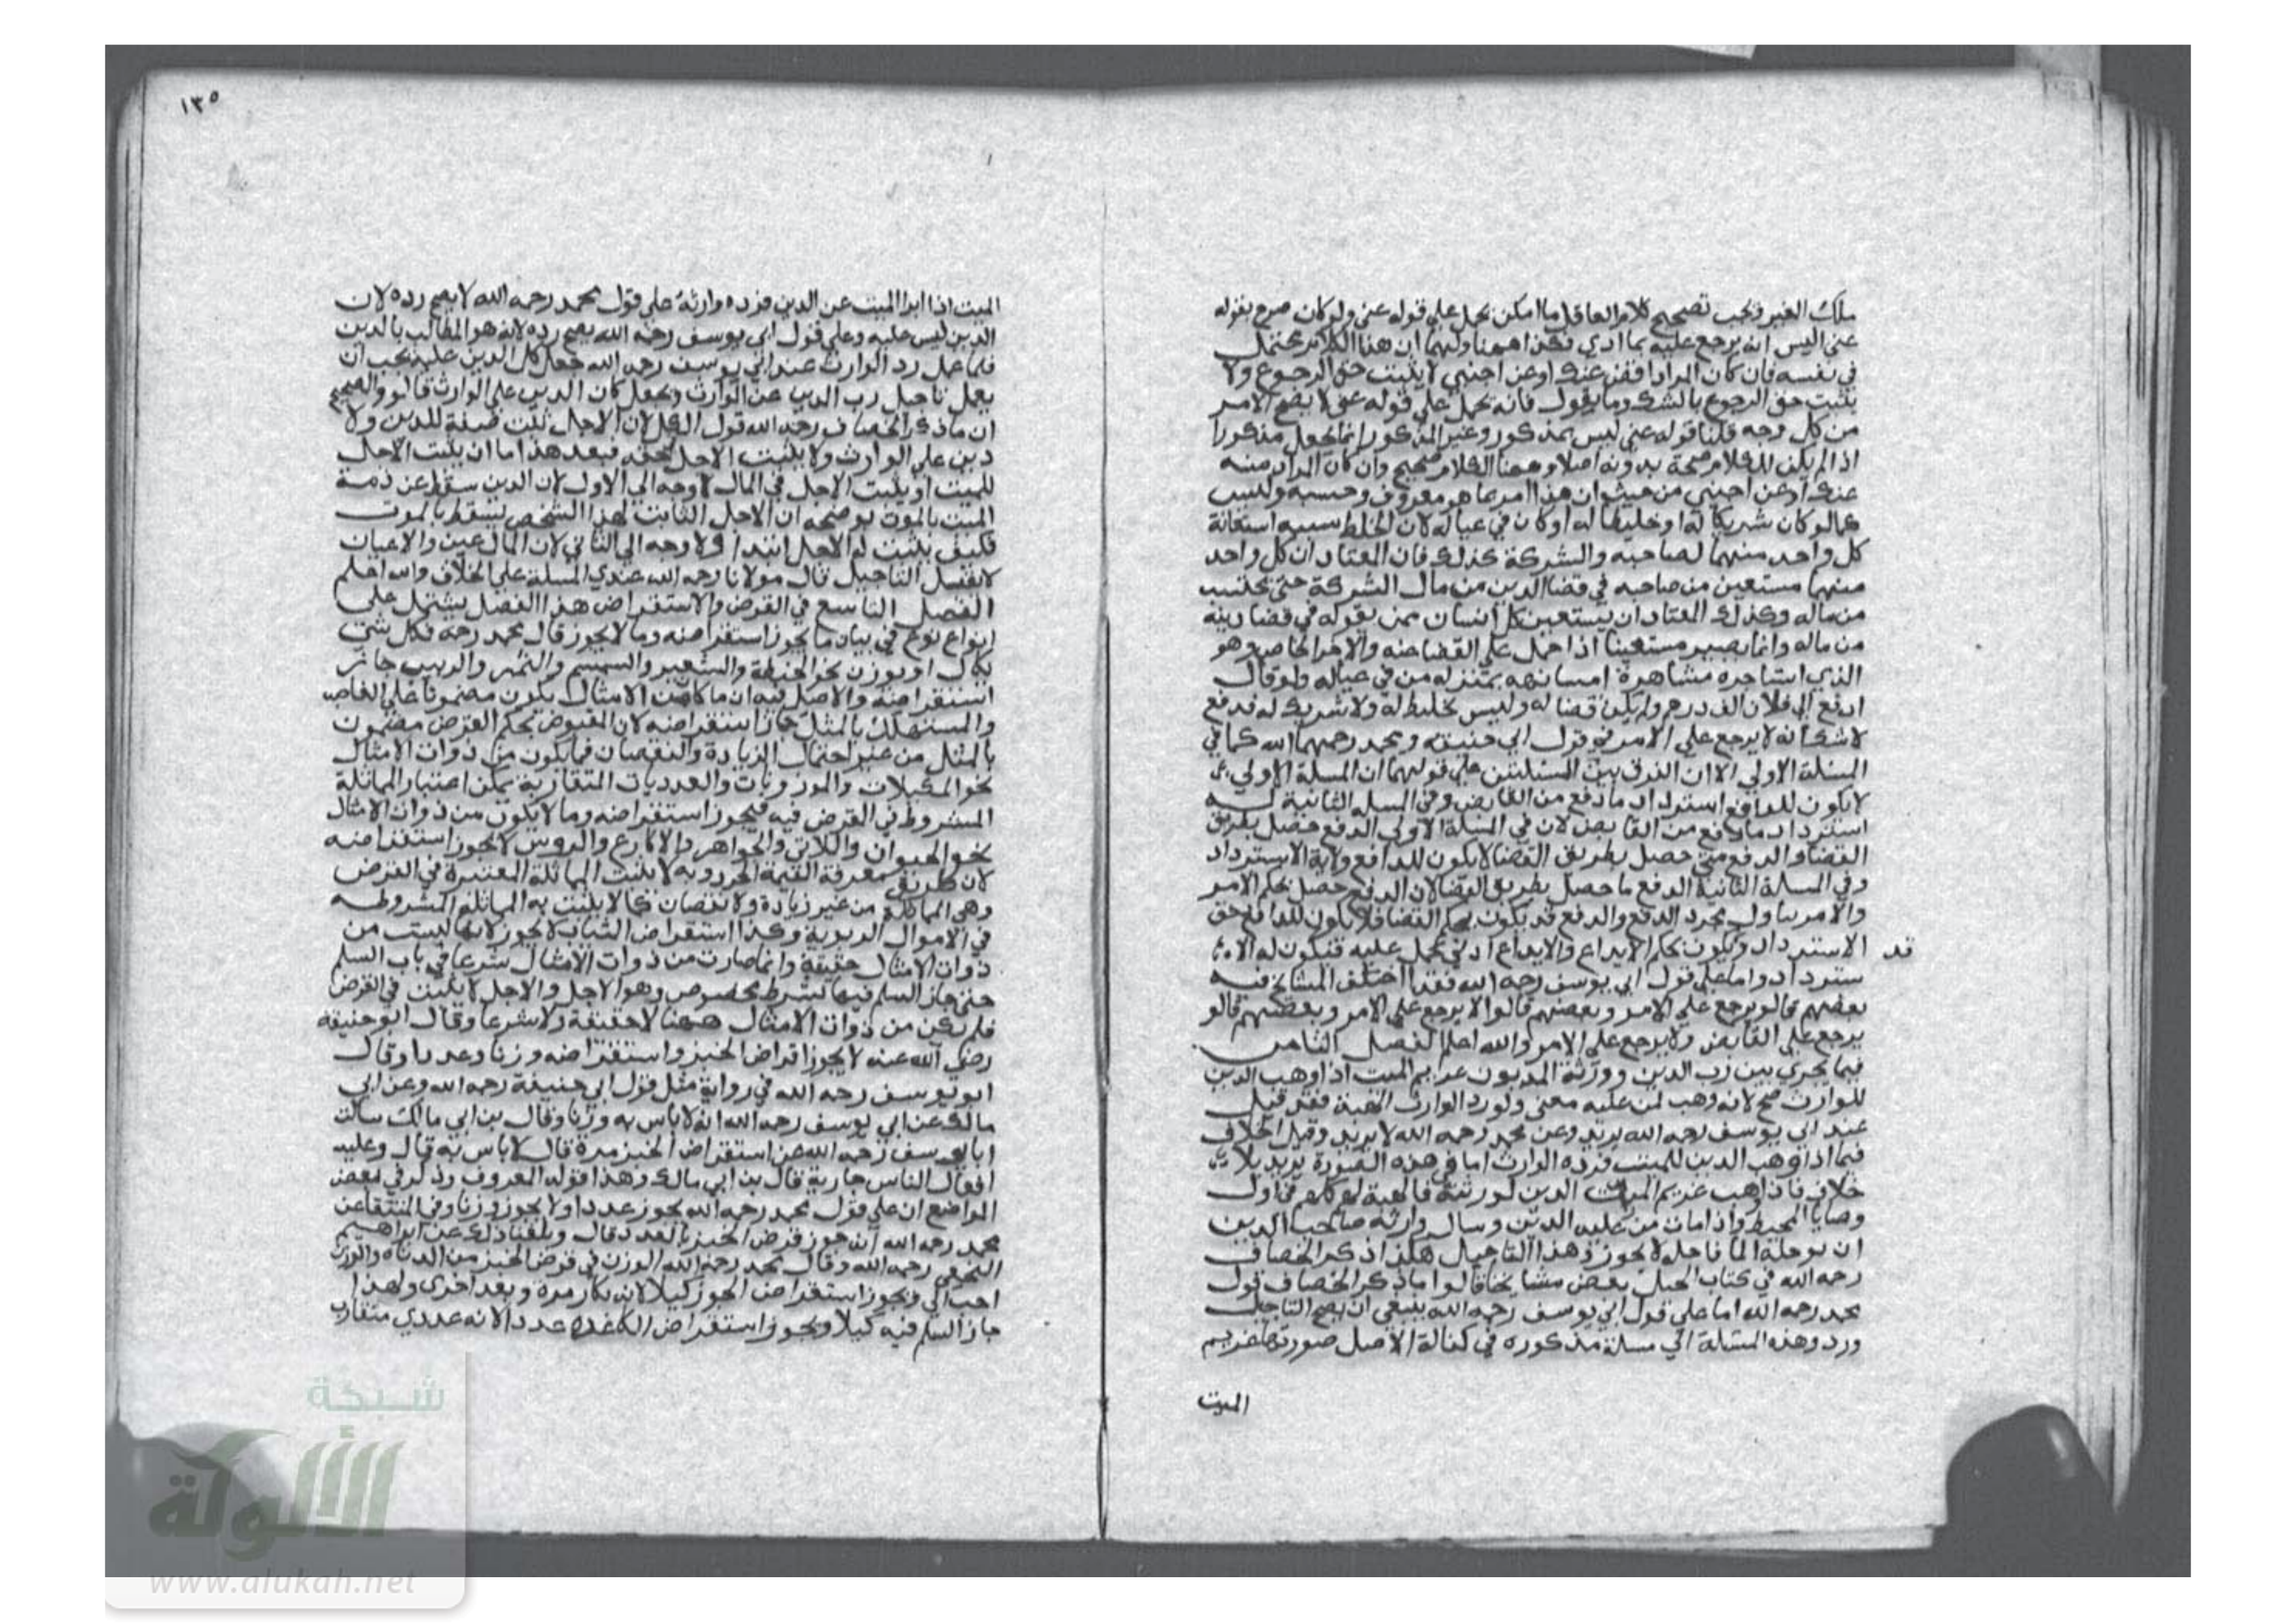 ملك الغير فيجب تصحيح كلام العاقل ما امكن يحمل على قوله عني ولو كان صرح بقوله
عني اليس انه يرجع عليه بما ادي فكذا ههنا ولهما ان هذا الكلام محتمل
في نفسه فان كان المراد اقض عنك او عن اجنبي لا يثبت حق الرجوع ولا
يثبت حق الرجوع بالشك وما يقول فانه يحمل على قوله عني لا يصح الامر
من كل وجه قلنا قوله عني ليس بمذكور وغير المذكور انما يجعل مذكورا
اذا لم يكن للكلام صحة بدونه اصلا وههنا الكلام صحيح وان كان المراد منه
عنك او عن اجنبي من حيث ان هذا امر بما هو معروف وحسبه وليس
كما لو كان شريكا له او خليطا له او كان في عياله لان الخلط سببه استعانة
كل واحد منهما لصاحبه والشركة كذلك فان المعتاد ان كل واحد
منهما مستعين من صاحبه في قضا الدين من مال الشركة حتى يحتسب
من ماله وكذلك المعتاد ان يستعين كل انسان بمن يقوله في قضا دينه
من ماله وانما يصير مستعينا اذا حمل على القضا عنه والاجير الخاص وهو
الذي استاجره مشاهرة او مسانهة بمنزلة من في عياله ولو قال
ادفع الى فلان الف درهم ولم يكن قضا له وليس بخليط له ولا شريك له فدفع
لا شك انه لا يرجع على الامر في قول ابي حنيفه ومحمد رحمهما الله كما في
المسئلة الاولي الا ان الفرق بين المسئلتين على قولهما ان المسلة الاولي
لا يكون للدافع استرداد ما دفع من القابض وفي المسله الثانية له
استرداد ما دفع من القابض لان في المسئلة الاولى الدفع حصل بطريق
القضا والدفع متى حصل بطريق القضا لا يكون للدافع ولاية الاسترداد
وفي المسلة الثانية الدفع ما حصل بطريق القضا لان الدفع حصل بحكم الامر
والامر تناول مجرد الدفع والدفع قد يكون بحكم القضا فلا يكون للدافع حق
قد الاسترداد ويكون بحكم الايداع والايداع ادنى يحمل عليه فتكون له الا
سترداد واما على قول ابي يوسف رحمه الله فقد اختلف المشايخ فيه
بعضهم قالو يرجع على الامر وبعضهم قالوا لا يرجع على الامر وبعضهم قالو
يرجع على القابض ولا يرجع على الامر والله اعلم الفصل الثامن
فيما يجري بين رب الدين وورثة المديون غريم الميت اذا وهب الدين
للوارث صح لانه وهب لمن عليه معنى ولو رد الوارث الهبة فقد قيل
عند ابي يوسف رحمه الله يرتد وعن محمد رحمه الله لا يرتد وقيل الخلاف
فيما اذا وهب الدين للميت فرده الوارث اما في هذه الصورة يرتد بلا
خلاف فاذا وهب غريم الميت الدين لورثته فالهبة لهم كلهم في اول
وصايا المحيط واذا مات من عليه الدين وسال وارثه صاحب الدين
ان يوجله الما فاجله لا يجوز هذا التاجيل هكذا ذكر الخصاف
رحمه الله في كتاب الحيل بعض مشايخنا قالوا ما ذكر الخصاف قول
محمد رحمه الله اما على قول ابي يوسف رحمه الله ينبغي ان يصح التاجيل
ورد وهذه المسئلة الى مسلة مذكوره في كفالة الاصل صورتها غريم
الميت
١٣٥
الميت اذا ابرا الميت عن الدين فرده وارثه على قول محمد رحمه الله لا يصح رده لان
الدين ليس عليه وعلى قول ابي يوسف رحمه الله يصح رده لانه هو المطالب بالدين
فلما عمل رد الوارث عند ابي يوسف رحمه الله جعل كل الدين عليه يجب ان
يعمل تاجيل رب الدين عن الوارث ويجعل كان الدين على الوارث قالوا والصحيح
ان ما ذكر الخصاف رحمه الله قول الكل لان الاجل يثبت صفة للدين ولا
دين على الوارث ولا يثبت الاجل بحقه فبعد هذا اما ان يثبت الاجل
للميت او يثبت الاجل في المال لا وجه الى الاول لان الدين سقط عن ذمة
الميت بالموت يوضحه ان الاجل الثابت لهذا الشخص يسقط بالموت
فكيف يثبت له الاجل ابتدا ولا وجه الى الثاني لان المال عين والاعيان
لا تقبل التاجيل قال مولانا رحمه الله عندي المسلة على الخلاف والله اعلم
الفصل التاسع في القرض والاستقراض هذا الفصل يشتمل على
انواع نوع في بيان ما يجوز استقراضه وما لا يجوز قال محمد رحمه فكل شي
يكال او يوزن نحو الحنطة والشعير والسمسم والتمر والزبيب جائز
استقراضه والاصل فيه ان ما كان من الامثال يكون مضمونا على الغاصب
والمستهلك بالمثل جاز استقراضه لان المقبوض بحكم القرض مضمون
بالمثل من غير احتمال الزيادة والنقصان فما يكون من ذوات الامثال
نحو المكيلات والموزونات والعدديات المتقاربة يمكن اعتبار المماثلة
المشروط في القرض فيه فيجوز استقراضه وما لا يكون من ذوات الامثال
نحو الحيوان واللالي والجواهر والاكارع والروس لا يجوز استقراضه
لان طريق معرفة القيمة الحزر وبه لا يثبت المماثلة المعتبرة في القرض
وهي المماثلة من غير زيادة ولا نقصان كما لا يثبت به المماثلة المشروطه
في الاموال الربوية وكذا استقراض الثياب لا يجوز لانها ليست من
ذوات الامثال حقيقة وانما صارت من ذوات الامثال شرعا في باب السلم
حتى جاز السلم فيها لشرط مخصوص وهو الاجل والاجل لا يثبت في القرض
فلم تكن من ذوات الامثال ههنا لا حقيقة ولا شرعا وقال ابو حنيفه
رضي الله عنه لا يجوز اقراض الخبز واستقراضه وزنا وعددا وقال
ابو يوسف رحمه الله في رواية مثل قول ابي حنيفة رحمه الله وعن ابي
مالك عن ابي يوسف رحمه الله انه لا باس به وزنا وقال بن ابي مالك سالت
ابا يوسف رحمه الله عن استقراض الخبز مرة قال لا باس به قال وعليه
افعال الناس جارية قال بن ابي مالك وهذا قوله المعروف وذكر في بعض
المواضع ان على قول محمد رحمه الله يجوز عددا ولا يجوز وزنا وفي المنتقا عن
محمد رحمه الله انه جوز قرض الخبز بالعدد قال وبلغنا ذلك عن ابراهيم
النخعي رحمه الله وقال محمد رحمه الله الوزن في قرض الخبز من الدناه والوزن
احب الي ويجوز استقراض الجوز كيلا لانه يكال مرة ويعد اخرى ولهذا
جاز السلم فيه كيلا ويجوز استقراض الكاغد عددا لانه عددي متقارب
شبكة
الألوكة
www.alukah.net